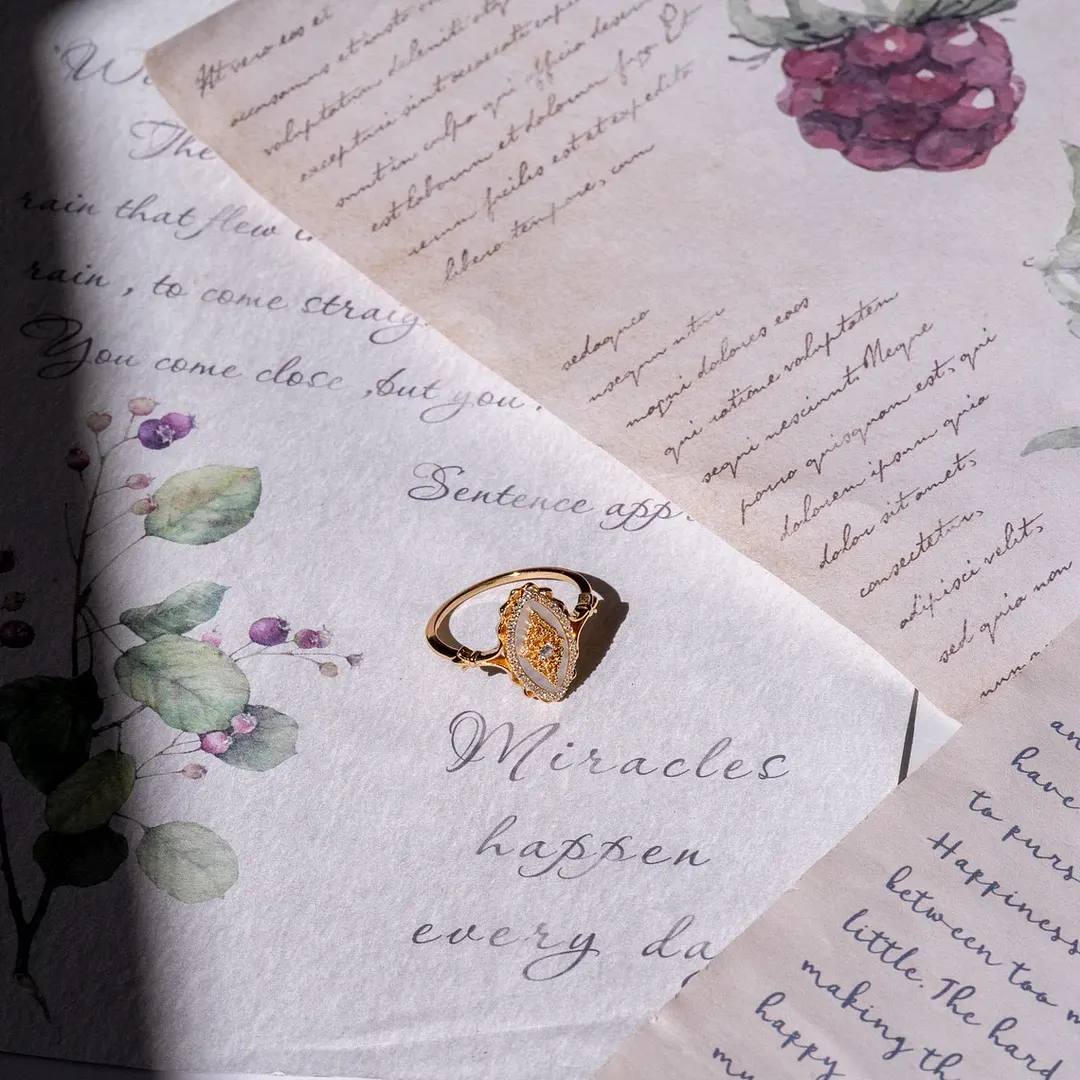 The
rain that flew
rain, to come straig
You come close, but you
Sentence app
Miracles
happen
every da
At vero eos et
accusamus et iusto
voluptatum deleniti
excepturi sint occaecati
sunt in culpa qui officia
est laborum et dolorum fuga. Et
rerum facilis est et expedita
libero tempore, cum
sed quia
magni dolores eos
qui ratione voluptatem
sequi nesciunt. Neque
porro quisquam est, qui
dolorem ipsum quia
dolor sit amet,
consectetur,
adipisci velit,
sed quia non
an
have
to purs
Happiness
between too
little. The hard
making th
happy
mu